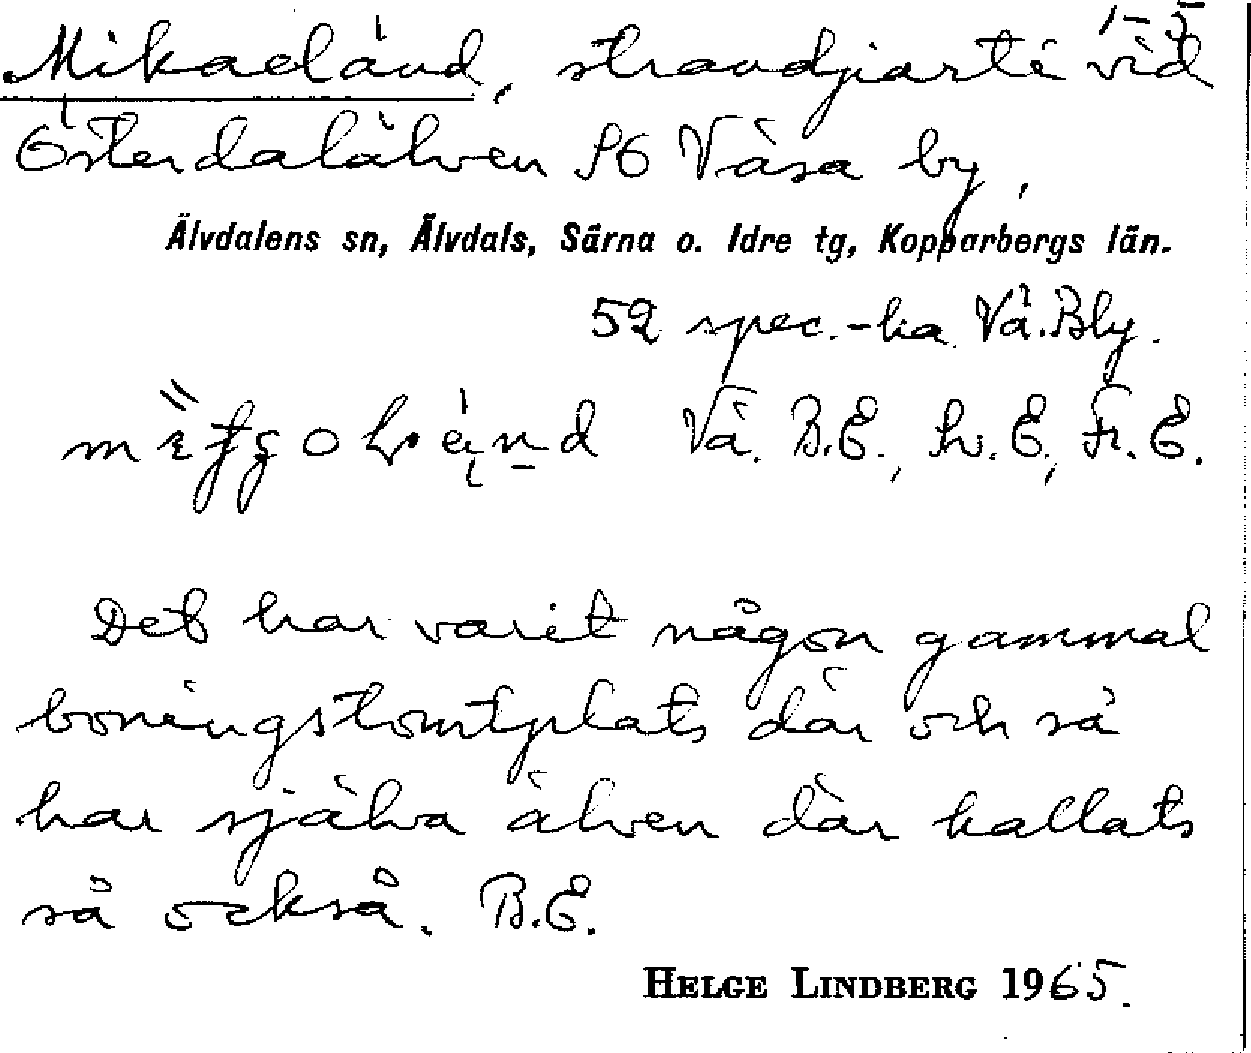 1-5
Mikaeländ, strandparti vid
Österdalälven SO Våsa by,
Älvdalens sn, Älvdals, Särna o. Idre tg, Kopparbergs län.
52 spec.-ka Vå. Bly.
Vå. B.E., L.E., Fr. E.
Det har varit någon gammal
boningstomtplats där och så
har själva älven där kallats
så också. B.E.
HELGE LINDBERG 1965.